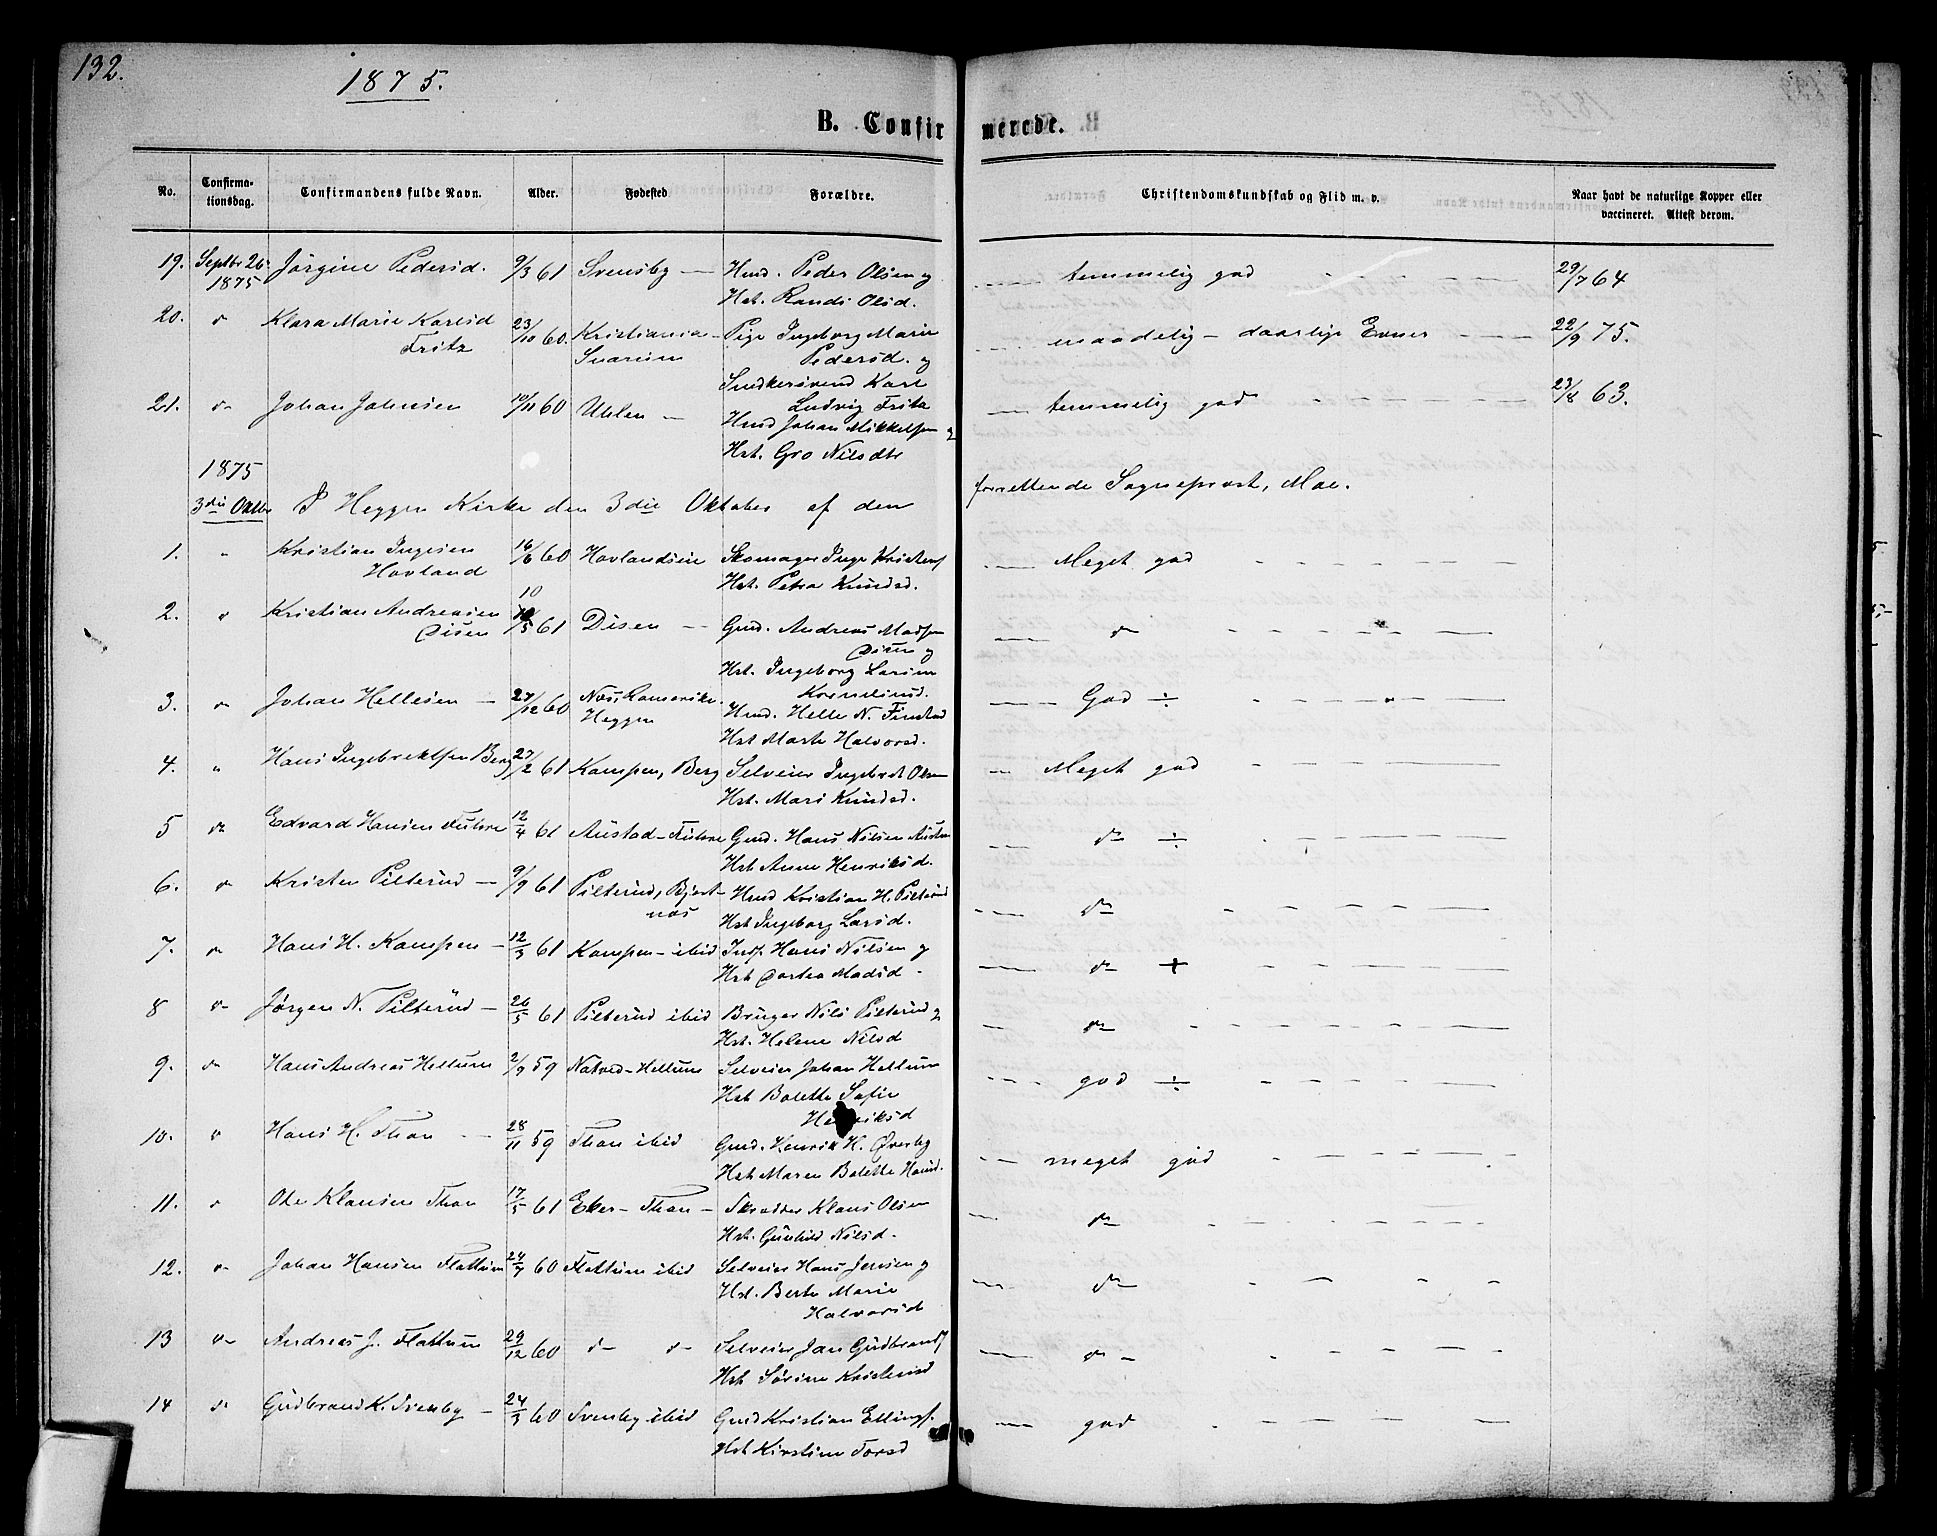 132.
1875.
B. Confirmerede.
No. Confirmationsdag. Confirmandens fulde Navn. Alder. Fødested Forældre. Christendomskundskab og Flid m. v. Naar havt de naturlige Kopper eller vaccineret. Attest derom.
19. Septbr 26. 1875 Jørgine Pedersd. 9/3 61 Svensby — Hmd. Peder Olsen og — temmelig god 29/7 64
Hst. Randi Olsd.
20. do Klara Marie Karlsd 23/10 60. Kristiania — Pige Ingeborg Marie — maadelig — daarlige Evner 22/9 75.
Fritz Snarum Pedersd. og
Snedkersvend Karl
Ludvig Fritz
21. do Johan Johnsen 10/11 60 Uhlen — Hmd Johan Mikkelsen og — temmelig god 23/8 63.
Hst. Gro Nilsdtr
1875
3die Oktbr I Heggen Kirke den 3die Oktober af den forrettende Sogneprest, Moe.
1. " Kristian Ingesen 16/6 60 Hovlandseie Skomager Inge Kristens — Meget god
Hovland Hst. Petra Knudsd.
2. " Kristian Andreasen 10/5 61 Disen — Gmd. Andreas Madsen — do
Disen Disen og
Hst. Ingeborg Larine
Korneliusd.
3. do Johan Hellesen — 27/12 60 Næs, Romerike. Hmd. Helle N. Finstad — God ÷
Heggen Hst Marte Halvorsd.
4. " Hans Ingebrektsen Berg 27/2 61 Kampen, Berg Selveier Ingebrekt Olsen — Meget god
Hst. Mari Knudsd.
5 do Edvard Hansen Fuhre 12/4 61 Austad — Fuhre Gmd. Hans Nilsen Austad — do ÷
Hst Anne Henriksd.
6. do Kristen Pilterud — 9/9 61 Pilterud, Bjertnæs Hmd Kristian H. Pilterud — do
Hst Ingeborg Larsd.
7. do Hans H. Kampen — 12/3 61 Kampen — ibid Inds. Hans Nilsen og — do +
Hst Dortea Madsd —
8 do Jørgen N. Pilterud — 26/5 61 Pilterud ibid Bruger Nils Pilterud og — do
Hst. Helene Nilsd
9. do Hans Andreas Hellum 2/9 59 Natved — Hellum Selveier Johan Hellum — god ÷
Hst Bolette Sofie
Henriksd
10. do Hans H. Thon 28/11 59 Thon ibid Gmd. Henrik H. Øverby — meget god
Hst Maren Bolette Hansd.
11. do Ole Klausen Thon 17/5 61 Eker — Thon — Skrædder Klaus Olsen — do
Hst. Gunhild Nilsd.
12. do Johan Hansen Flattum 24/7 60 Flattum ibid Selveier Hans Jensen og — do
Hst. Berte Marie
Halvorsd
13 do Andreas J. Flattum 29/12 60 do do Selveier Jan Gudbrands — do
Hst Sørine Kristensd
14 do Gudbrand K. Svenby — 24/3 60 Svenby ibid Gmd Kristian Ellings. — god
Hst Kirstine Torsd